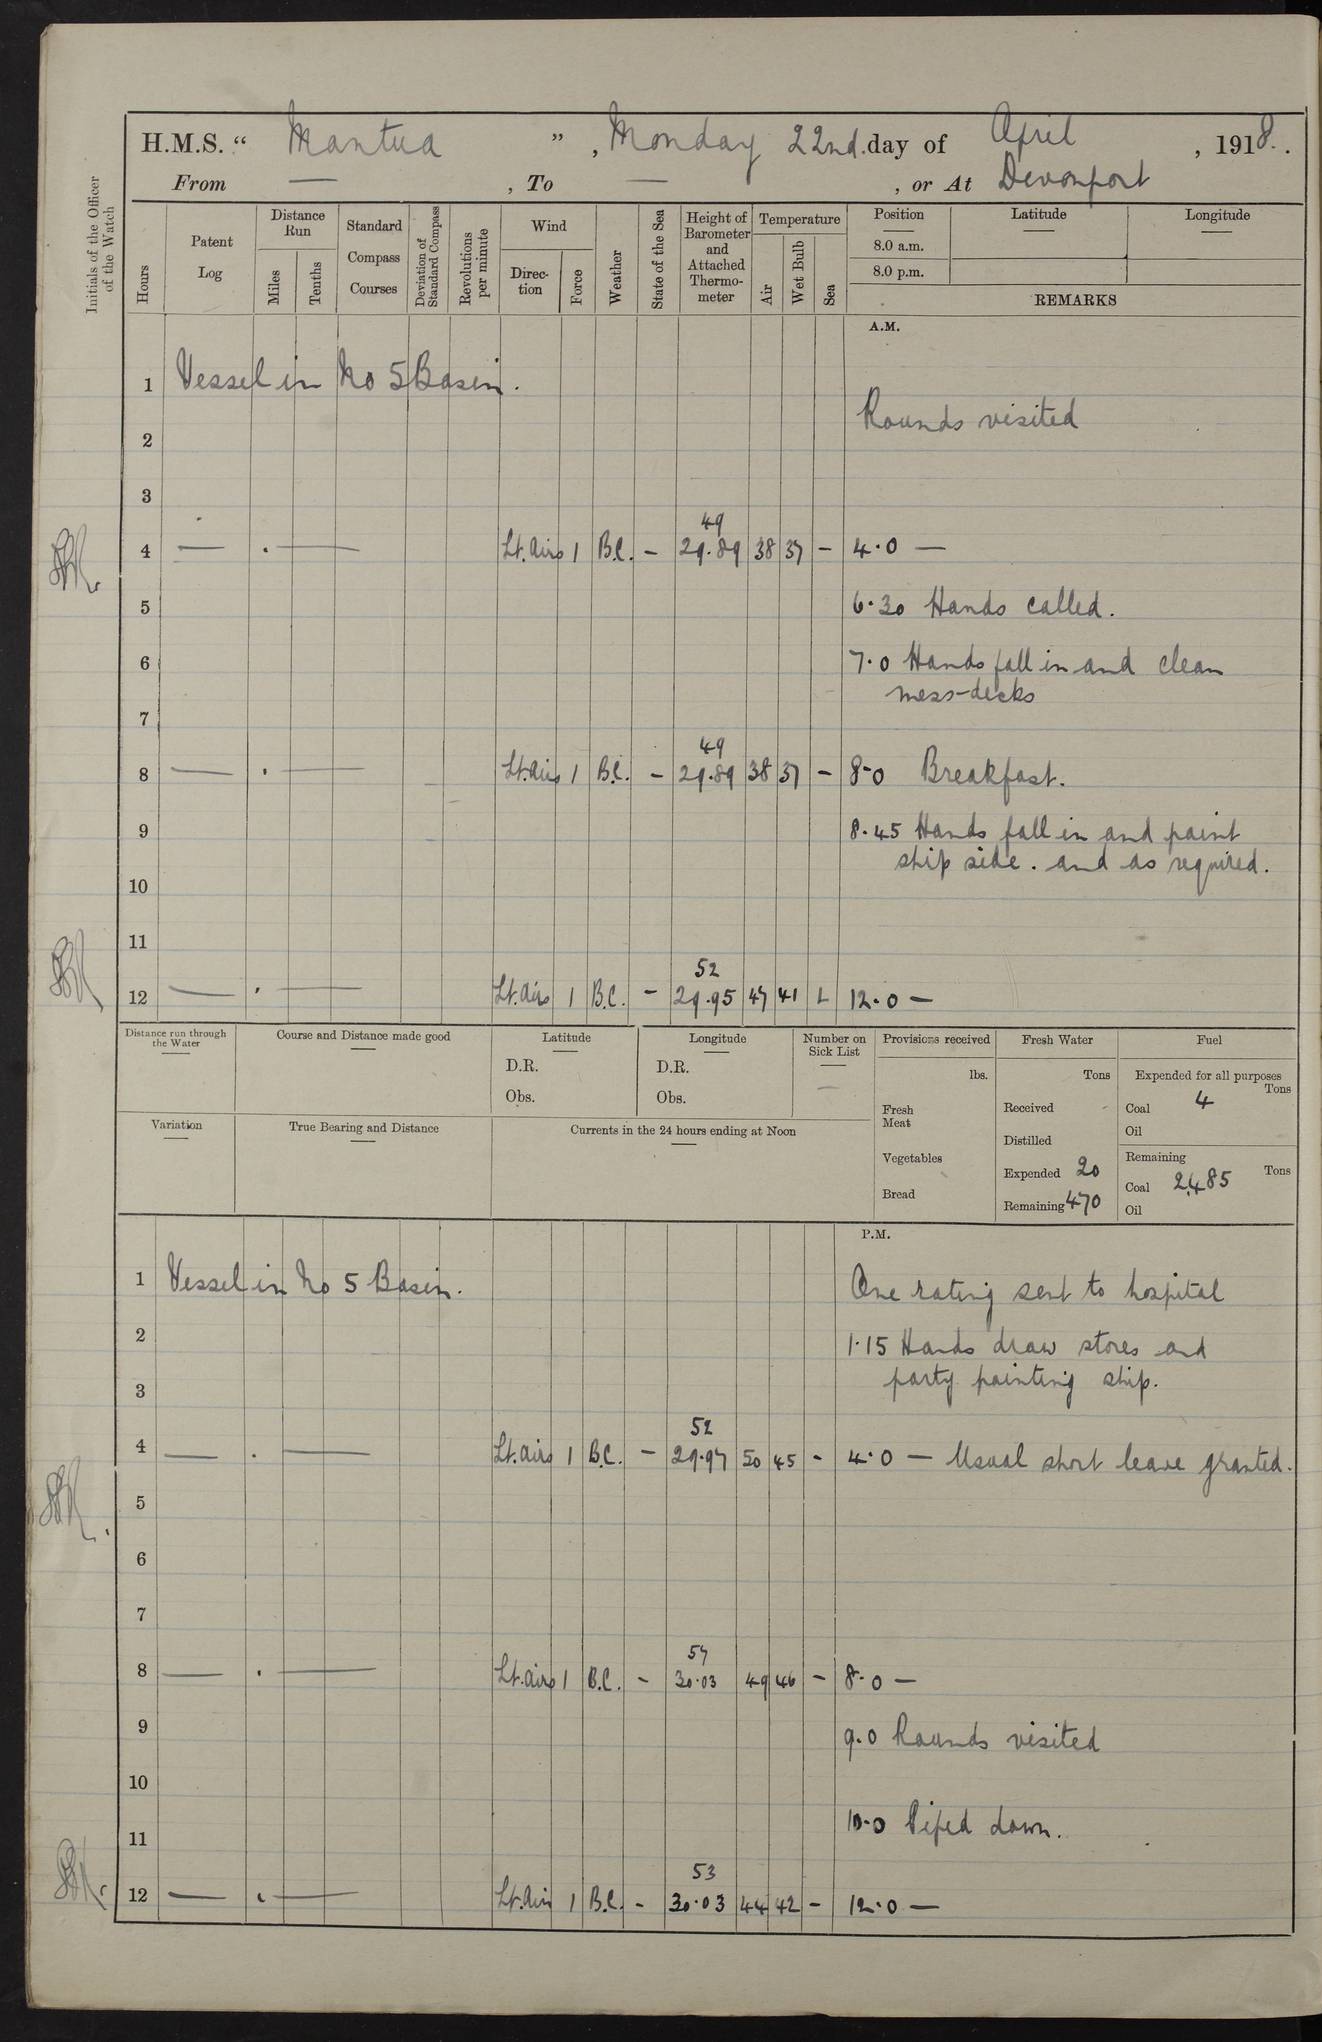 H.M.S. “ Mantua ” , Monday 22nd. day of April , 1918. .
From — , To — , or At Devonport
Initials of the Officer of the Watch
Hours
Patent Log
Distance Run
Miles
Tenths
Standard Compass Courses
Deviation of Standard Compass
Revolutions per minute
Wind
Direc-tion
Force
Weather
State of the Sea
Height of Barometer and Attached Thermo-meter
Temperature
Air
Wet Bulb
Sea
Position
Latitude
Longitude
8.0 a.m.
8.0 p.m.
REMARKS
A.M.
1 Vessel in No 5 Basin.
Rounds visited
2
3
49
4 — . — Lt. Airs 1 B.C. – 29.89 38 37 – 4.0 —
5 6.30 Hands called.
6 7.0 Hands fall in and clean
mess-decks
7
49
8 — . — Lt. Airs 1 B.C. – 29.89 38 37 – 8.0 Breakfast.
9 8.45 Hands fall in and paint
ship side. and as required.
10
11
52
12 — . — Lt. Airs 1 B.C. – 29.95 47 41 – 12.0 —
Distance run through the Water
Course and Distance made good
Latitude
D.R.
Obs.
Longitude
D.R.
Obs.
Number on Sick List
—
Provisions received
lbs.
Fresh Meat
Vegetables
Bread
Fresh Water
Tons
Received -
Distilled
Expended 20
Remaining 470
Fuel
Expended for all purposes
Tons
Coal 4
Oil
Remaining
Tons
Coal 2485
Oil
Variation
True Bearing and Distance
Currents in the 24 hours ending at Noon
P.M.
1 Vessel in No 5 Basin. One rating sent to hospital
2 1.15 Hands draw stores and
party painting ship.
3
52
4 — . — Lt. Airs 1 B.C. – 29.97 50 45 - 4.0 — Usual short leave granted.
5
6
7
57
8 — . — Lt. Airs 1 B.C. – 30.03 49 46 – 8.0 —
9 9.0 Rounds visited
10
10.0 Piped down.
11
53
12 — . — Lt. Airs 1 B.C. - 30.03 44 42 – 12.0 —